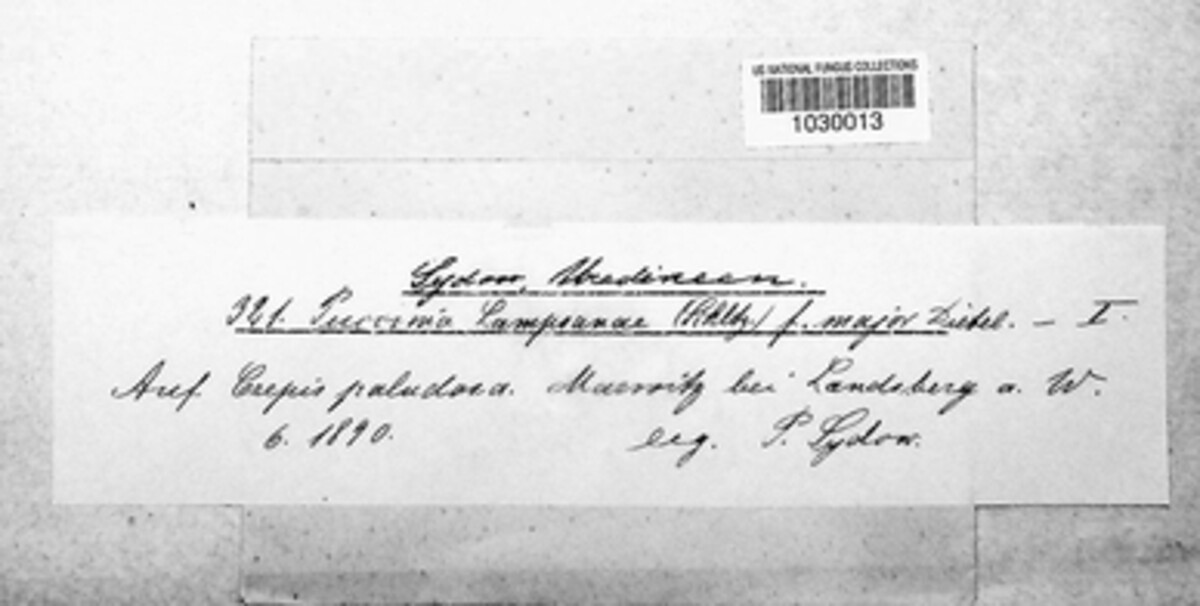 US NATIONAL FUNGUS COLLECTIONS
1030013
Sydow, Uredineen.
321. Puccinia Lampsanae (Schltz.) f. major Dietel. — I.
Auf Crepis paludosa. Marwitz bei Landsberg a. W.
6. 1890. leg. P. Sydow.